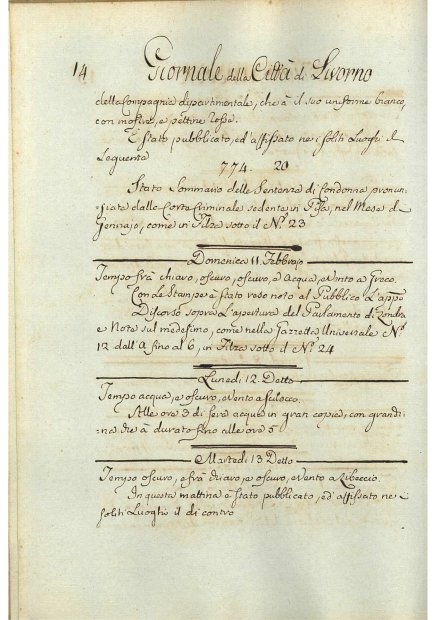 14 Giornale della Città di Livorno
della Compagnia dipartimentale, che à il suo uniforme bianco,
con mostre, e pettine rosse.
È stato pubblicato, ed affissato ne i soliti Luoghi il
seguente
774. 20
Stato Sommario delle Sentenze di Condonna pronun-
ziate dalla Corte Criminale sedente in Pisa, nel Mese di
Gennajo, come in Filza sotto il N.º 23
Domenica 11. Febbrajo
Tempo frà chiaro, oscuro, oscuro, à Acqua, e Vento a Greco.
Con le Stampe è stato reso noto al Pubblico L'appo
Discorso sopra L'apertura del Parlamento di Londra
e Note sul medesimo, come nella Gazzetta Universale N.º
12 dall'A fino al 6, in Filza sotto il N.º 24
Lunedì 12. Detto
Tempo acqua, e oscuro, e Vento a Scilocco.
Alle ore 3 di sera acqua in gran copia, con grandi-
-na che à durato fino alle ore 5
Martedì 13 Detto
Tempo oscuro, e frà chiaro, e oscuro, e Vento a Libeccio.
In questa mattina è stato pubblicato, ed affissato ne
soliti Luoghi il di contro